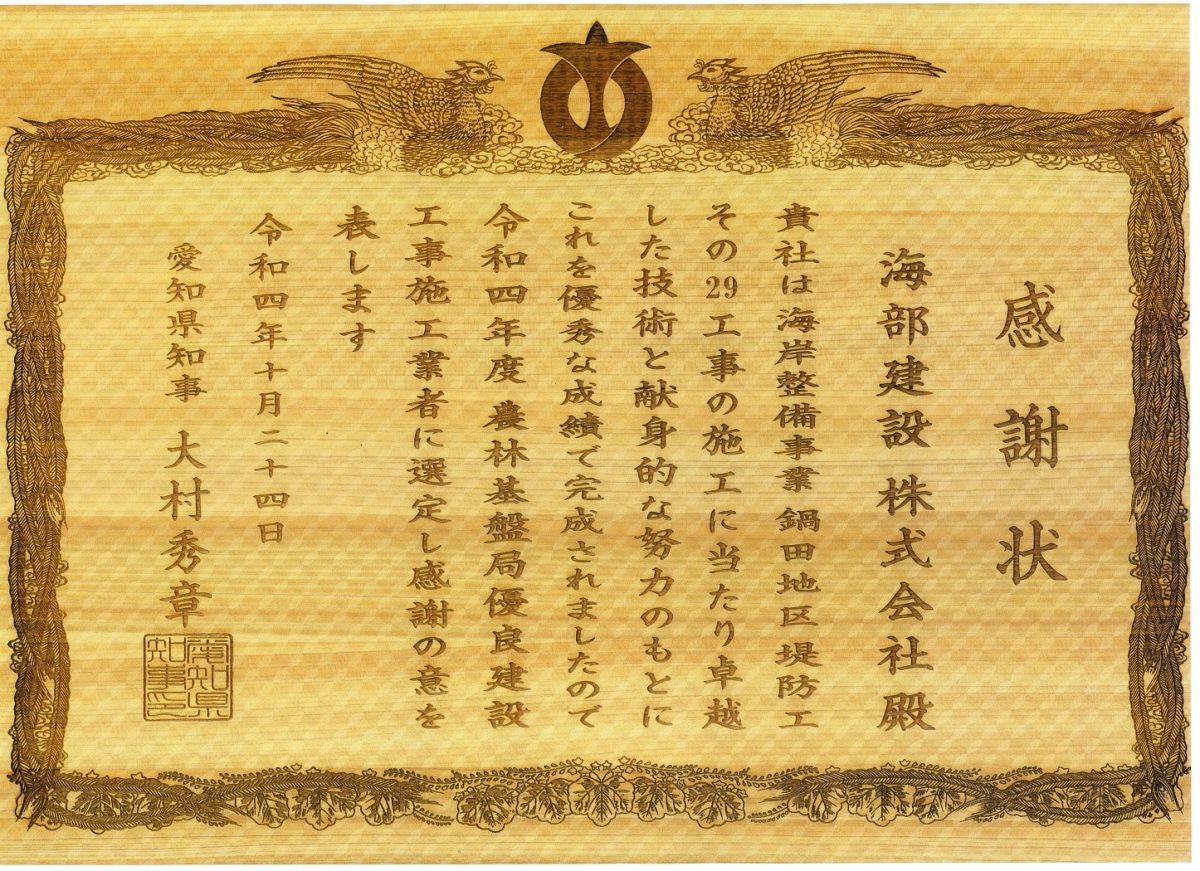 感謝状
海部建設株式会社殿
貴社は海岸整備事業鍋田地区堤防工
その29工事の施工に当たり卓越
した技術と献身的な努力のもとに
これを優秀な成績で完成されましたので
令和四年度農林基盤局優良建設
工事施工業者に選定し感謝の意を
表します
令和四年十月二十四日
愛知県知事 大村秀章
愛知県
知事之印